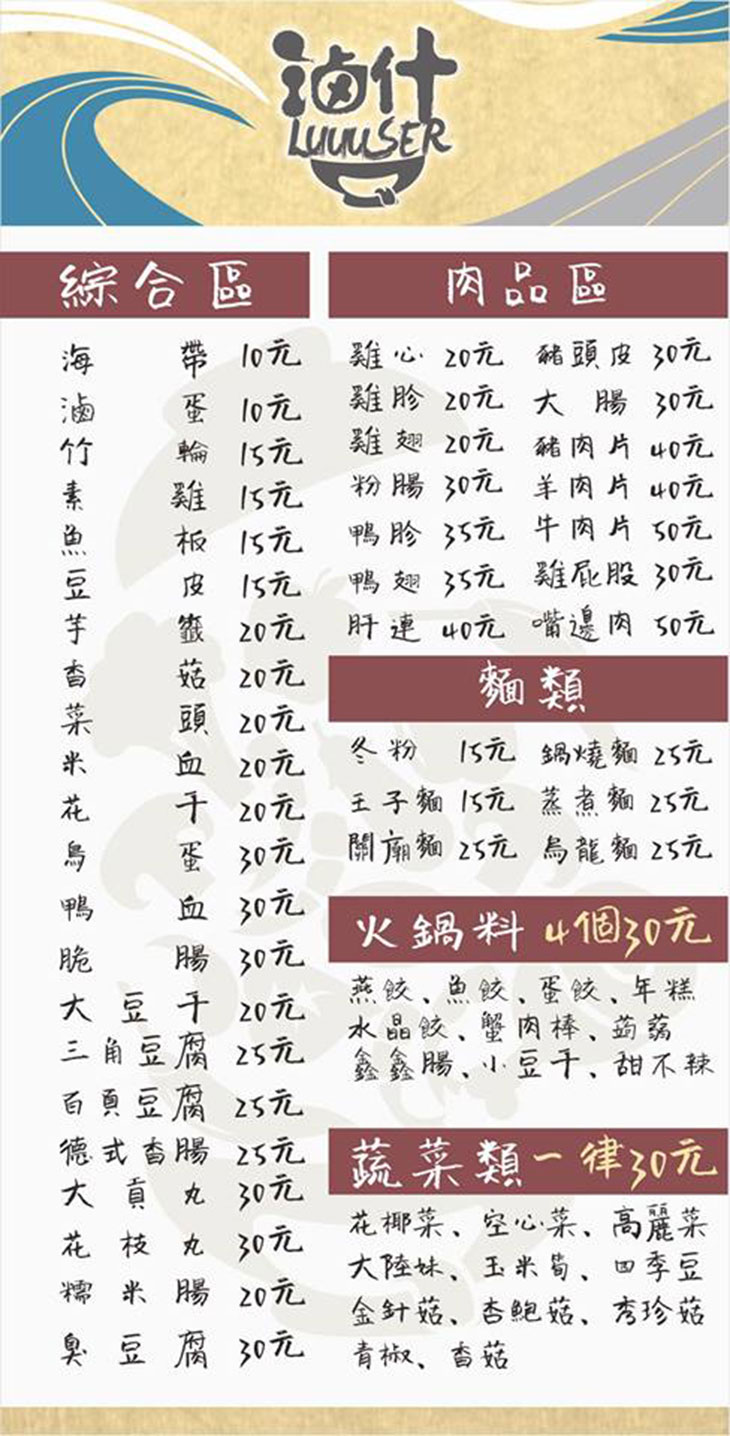 滷什
LUUUSER
綜合區
海帶 10元
滷蛋 10元
竹輪 15元
素雞 15元
魚板 15元
豆皮 15元
芋籤 20元
香菇 20元
菜頭 20元
米血 20元
花干 20元
鳥蛋 30元
鴨血 30元
脆腸 30元
大豆干 20元
三角豆腐 25元
百頁豆腐 25元
德式香腸 25元
大貢丸 30元
花枝丸 30元
糯米腸 20元
臭豆腐 30元
肉品區
雞心 20元 豬頭皮 30元
雞胗 20元 大腸 30元
雞翅 20元 豬肉片 40元
粉腸 30元 羊肉片 40元
鴨胗 35元 牛肉片 50元
鴨翅 35元 雞屁股 30元
肝連 40元 嘴邊肉 50元
麵類
冬粉 15元 鍋燒麵 25元
王子麵 15元 蒸煮麵 25元
關廟麵 25元 烏龍麵 25元
火鍋料 4個30元
燕餃、魚餃、蛋餃、年糕
水晶餃、蟹肉棒、蒟蒻
鑫鑫腸、小豆干、甜不辣
蔬菜類一律30元
花椰菜、空心菜、高麗菜
大陸妹、玉米筍、四季豆
金針菇、杏鮑菇、秀珍菇
青椒、香菇